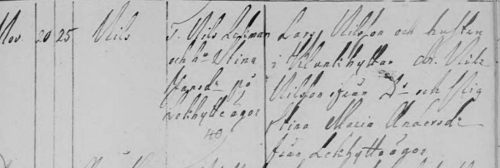 Nov. 20 25 Nils
T. Nils Lekman
och h. Stina
Persd: på
Lekhytteäger
40
Lars Nilsson och hustru
i Qvarnhyttan dr. Nils
Nilsson från D:o och Pig
Stina Maria Andersd:
från Lekhytteäger